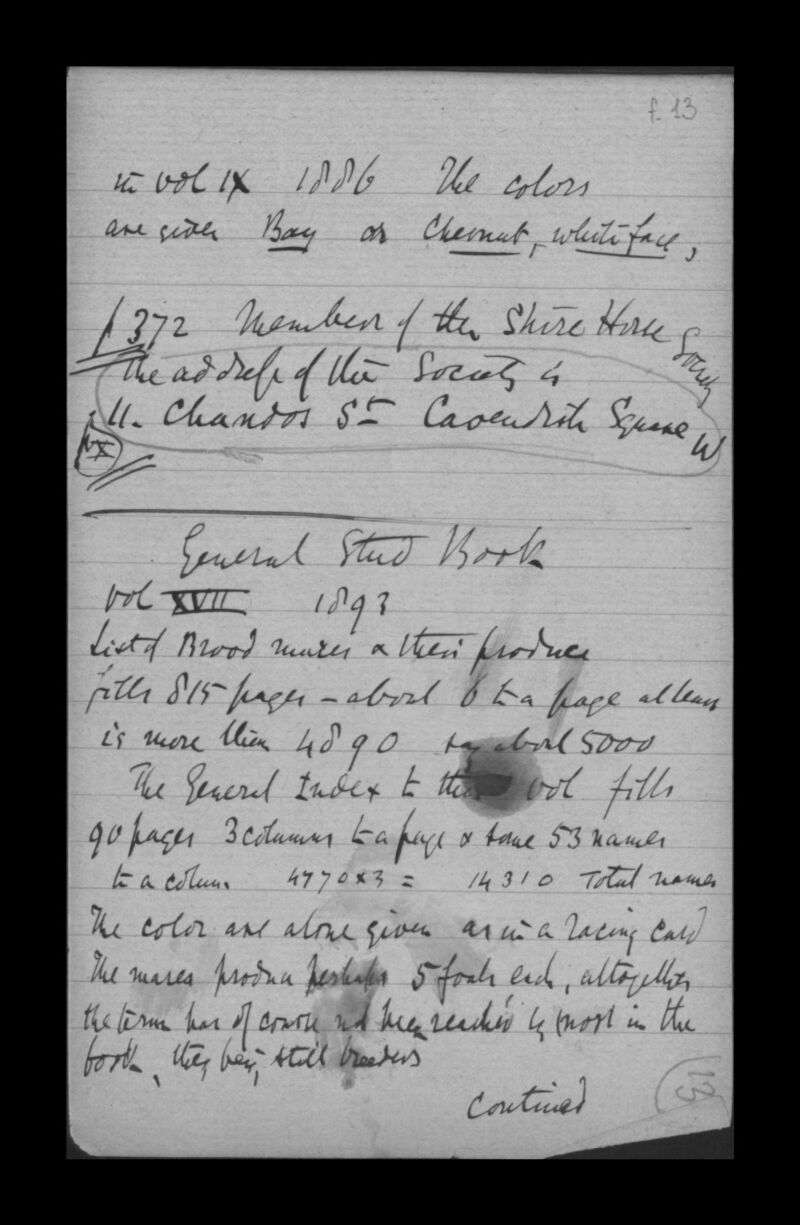 f. 13
in vol IX 1886 The colors
are given Bay or Chesnut, white face,
p 372 Members of the Shire Horse Society
The address of the Society is
12 Chandos St Cavendish Square W
General Stud Book
vol XVII 1893
List of Brood mares & their produce
fills 815 pages – about 6 to a page at least
is more than 4890 say about 5000
The General Index to this vol fills
90 pages 3 columns to a page & some 53 names
to a column 4770 x 3 = 14310 Total names
The color are alone given as in a racing card
The mares produce perhaps 5 foals each, altogether
the term has of course not been reached by most in the
book, they being still breeders
Continued
13